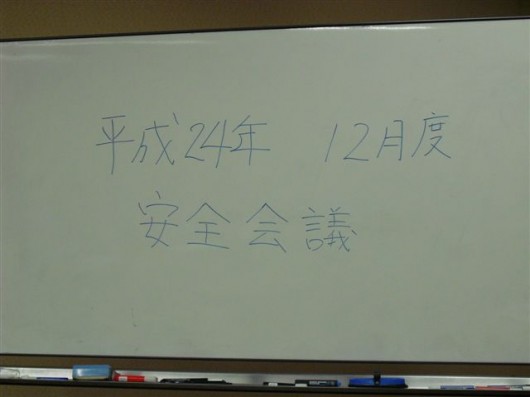 平成24年 12月度
安全会議